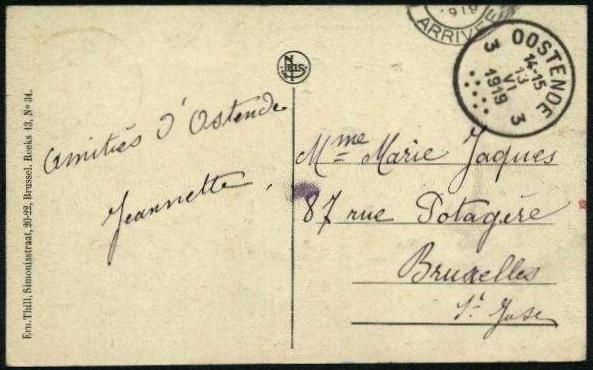 Ern. Thill, Simonisstraat, 20-22, Brussel. Reeks 13, No 34.
Nels
amitiés d'Ostende
Jeannette.
1919
ARRIVEE
OOSTENDE
14-15
13
VI
1919
3 3
Mme Marie Jaques
87 rue Potagère
Bruxelles
St. Josse